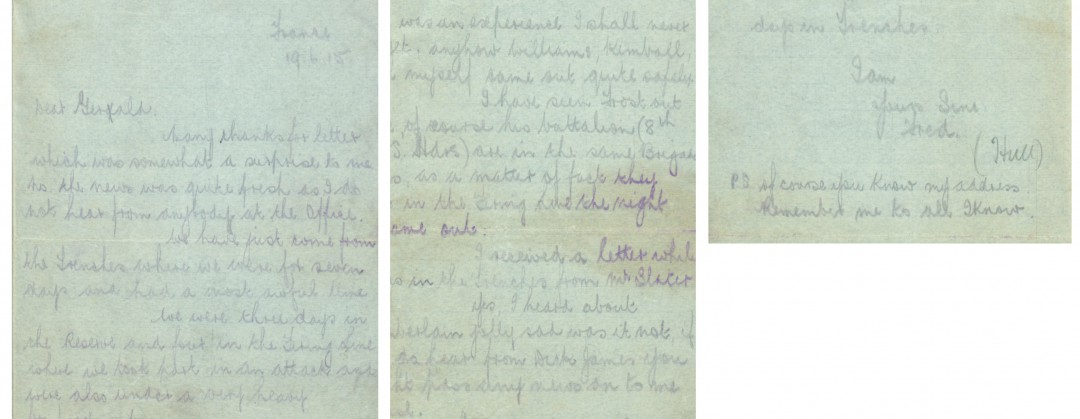 France
19.6.15
Dear Gerald.
Many thanks for letter
which was somewhat a surprise to me
No the news was quite fresh as I do
not hear from anybody at the Office.
We have just come from
the Trenches where we were for seven
days and had a most awful time
We were three days in
the Reserve and four in the firing line
where we took part in an attack and
were also under a very heavy
was an experience I shall never
anyhow Williams, Kimball,
myself came out quite safely
I have seen Frost out
of course his battalion (8th
are in the same Brigade
as a matter of fact they
in the firing line the night
came out.
I received a letter while
in the trenches from Mr Slater
Yes, I heard about
jolly sad was it not, if
hear from Dick James you
passing news on to me
days in Trenches.
I am
Yours Sinc
Fred.
(Hull)
P.S. of course you know my address.
Remember me to all I know.